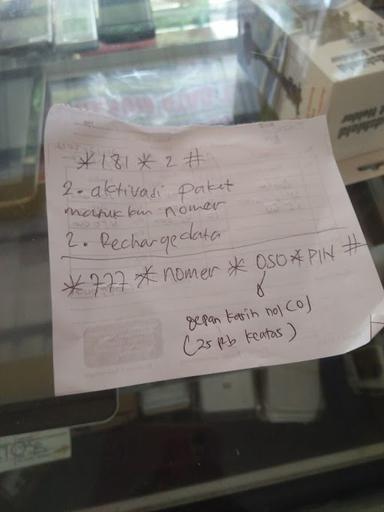 *181*2#
2. aktivasi paket
masukkan nomer
2. Recharge data
*777*nomer*050*PIN#
depan kasih nol (0)
(25 Rb keatas)